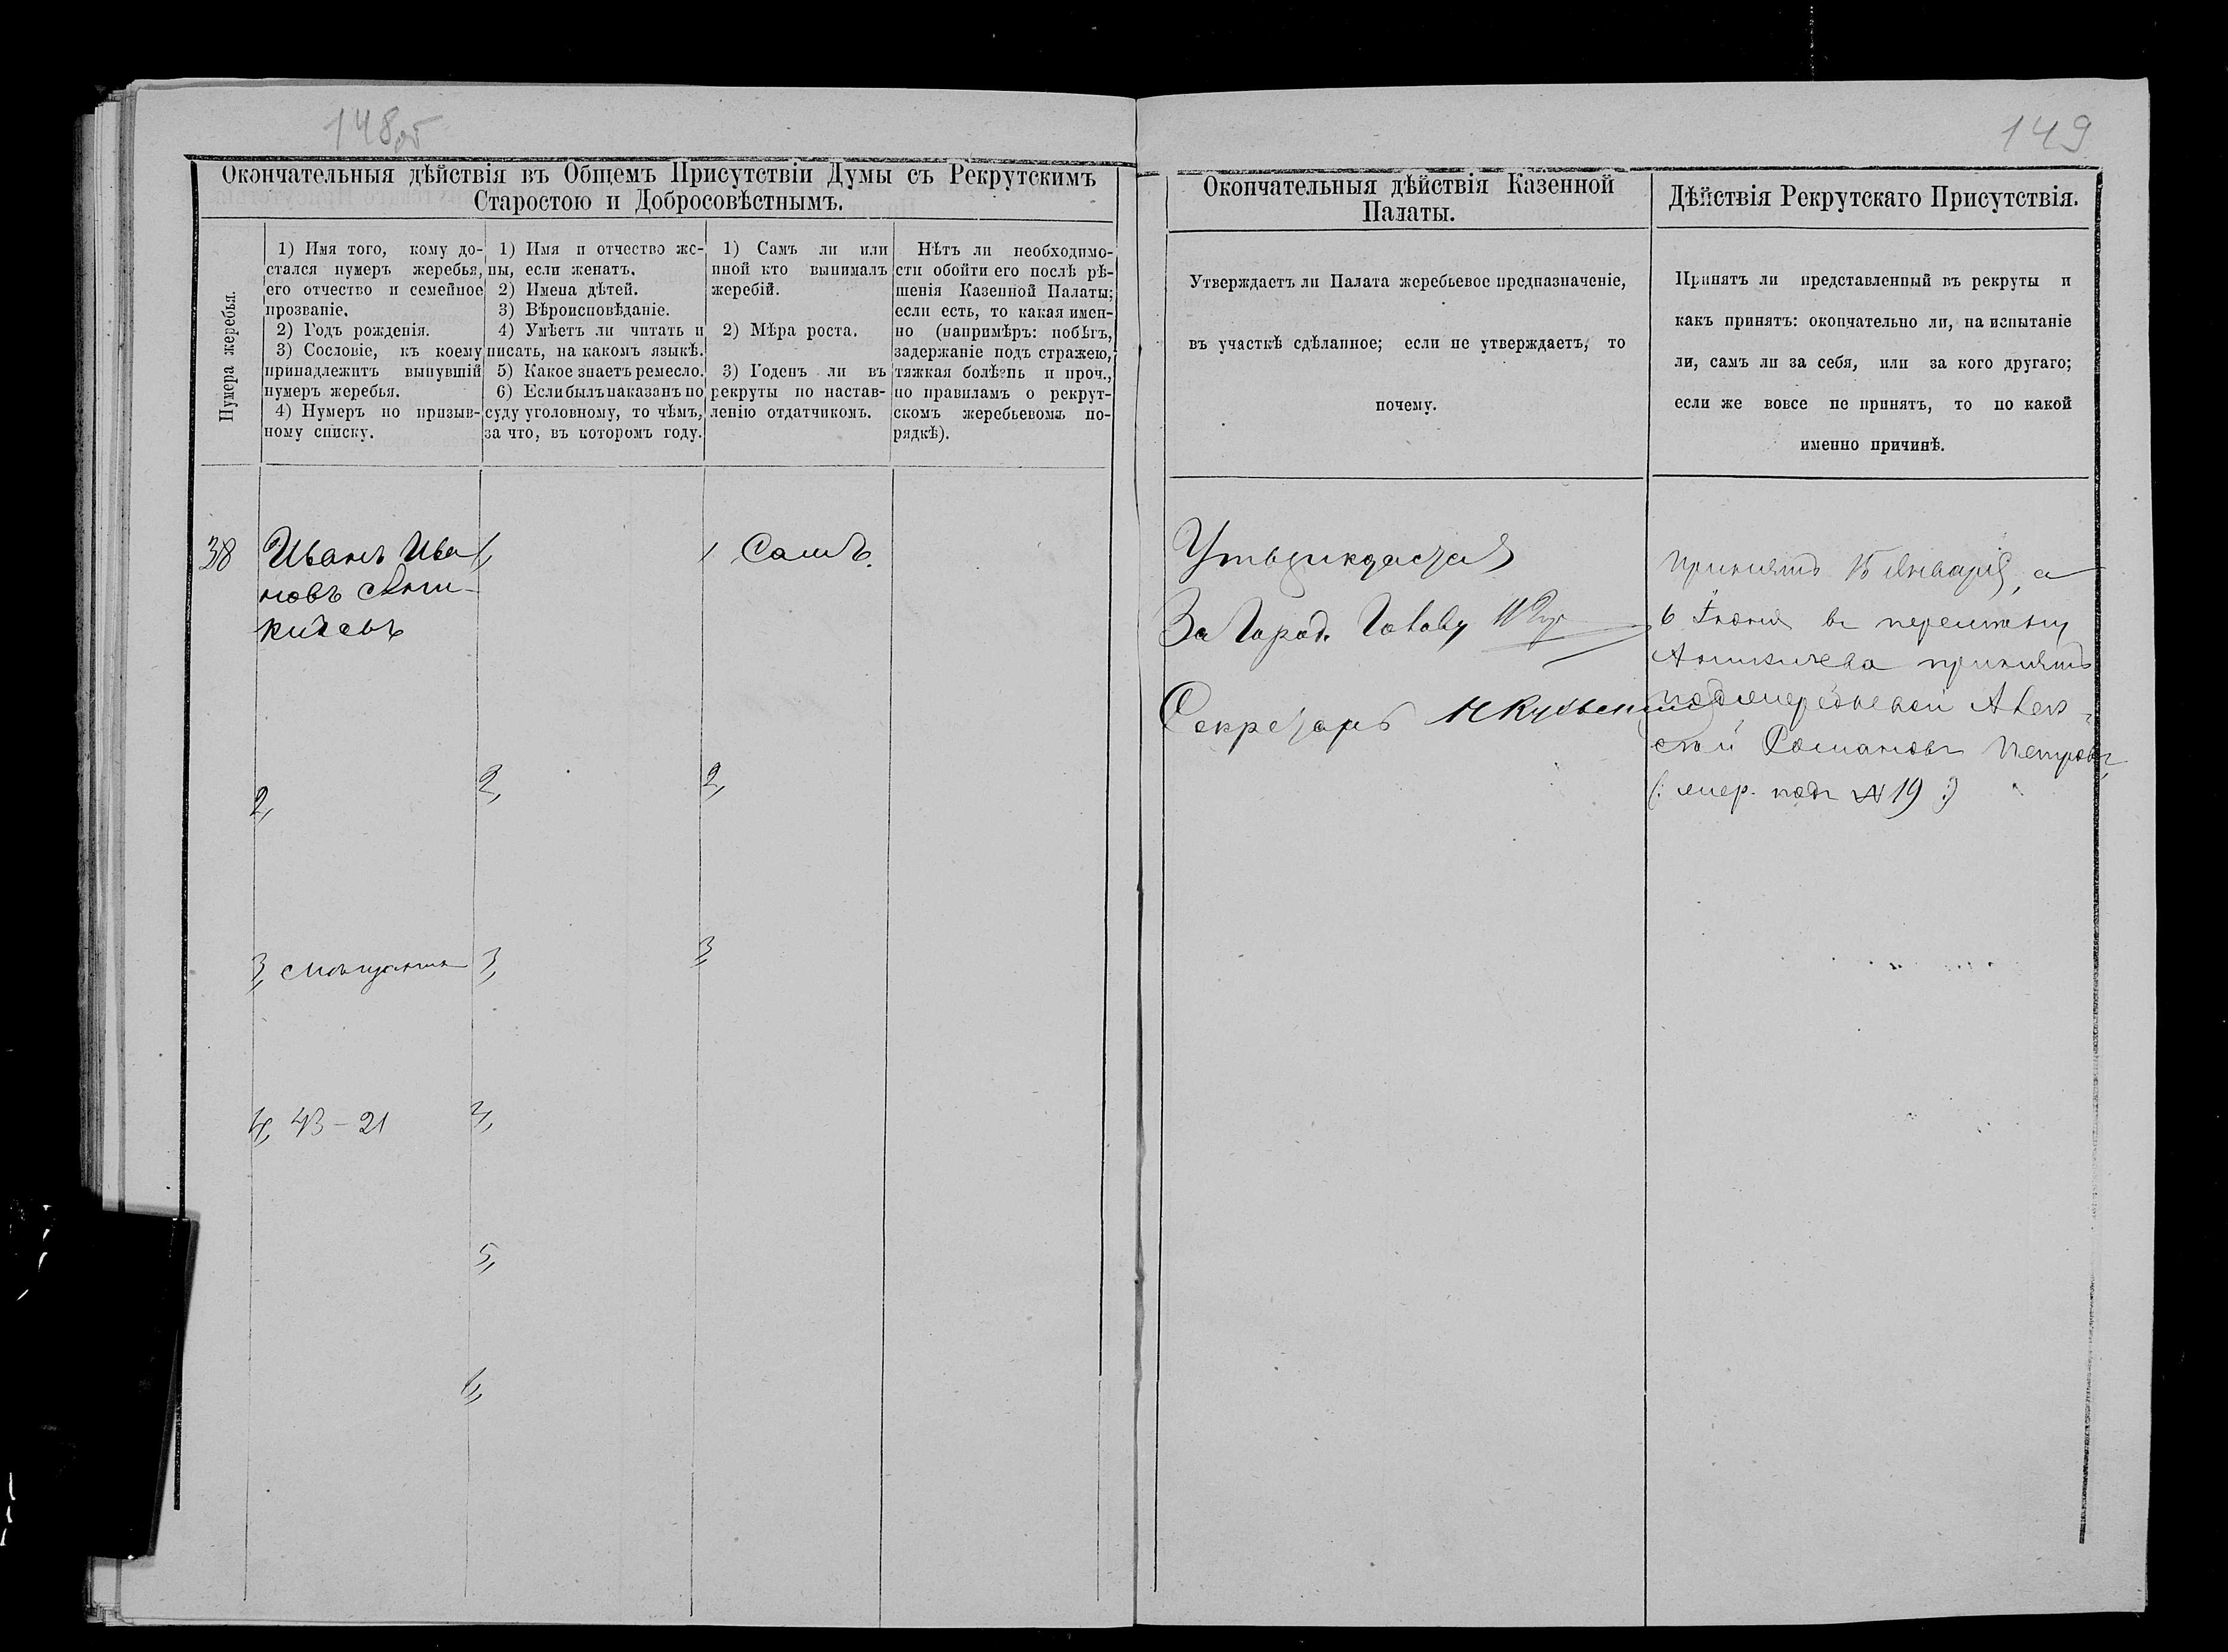 148об
149
Окончательныя дѣйствія въ Общемъ Присутствіи Думы съ Рекрутскимъ
Старостою и Добросовѣстнымъ.
Нумера жеребья.
1) Имя того, кому до-
стался нумеръ жеребья,
его отчество и семейное
прозваніе.
2) Годъ рожденія.
3) Сословіе, къ коему
принадлежитъ вынувшій
нумеръ жеребья.
4) Нумеръ по призыв-
ному списку.
1) Имя и отчество же-
ны, если женатъ.
2) Имена дѣтей.
3) Вѣроисповѣданіе.
4) Умѣетъ ли читать и
писать, на какомъ языкѣ.
5) Какое знаетъ ремесло.
6) Если былъ наказанъ по
суду уголовному, то чѣмъ,
за что, въ которомъ году.
1) Самъ ли или
иной кто вынималъ
жеребій.
2) Мѣра роста.
3) Годенъ ли въ
рекруты по настав-
ленію отдатчикомъ.
Нѣтъ ли необходимо-
сти обойти его послѣ рѣ-
шенія Казенной Палаты;
если есть, то какая имен-
но (напримѣръ: побѣгъ,
задержаніе подъ стражею,
тяжкая болѣзнь и проч.,
по правиламъ о рекрут-
скомъ жеребьевомъ по-
рядкѣ).
Окончательныя дѣйствія Казенной
Палаты.
Утверждаетъ ли Палата жеребьевое предназначеніе,
въ участкѣ сдѣланное; если не утверждаетъ, то
почему.
Дѣйствія Рекрутскаго Присутствія.
Принятъ ли представленный въ рекруты и
какъ принятъ: окончательно ли, на испытаніе
ли, самъ ли за себя, или за кого другаго;
если же вовсе не принятъ, то по какой
именно причинѣ.
38
Иванъ Ива
новъ Ани-
кичевъ
2,
3, Мѣщанин
4, 43-21
1,
2,
3,
4,
5,
6,
1 Самъ.
2,
3,
Утверждается
За Город. Голову
Секретарь
Принятъ 15 Января, а
6 Іюня въ перемѣну
Аникичева принятъ
подочередневой Алек
сѣй Романовъ Петровъ,
(: жер. подъ № 19 :)